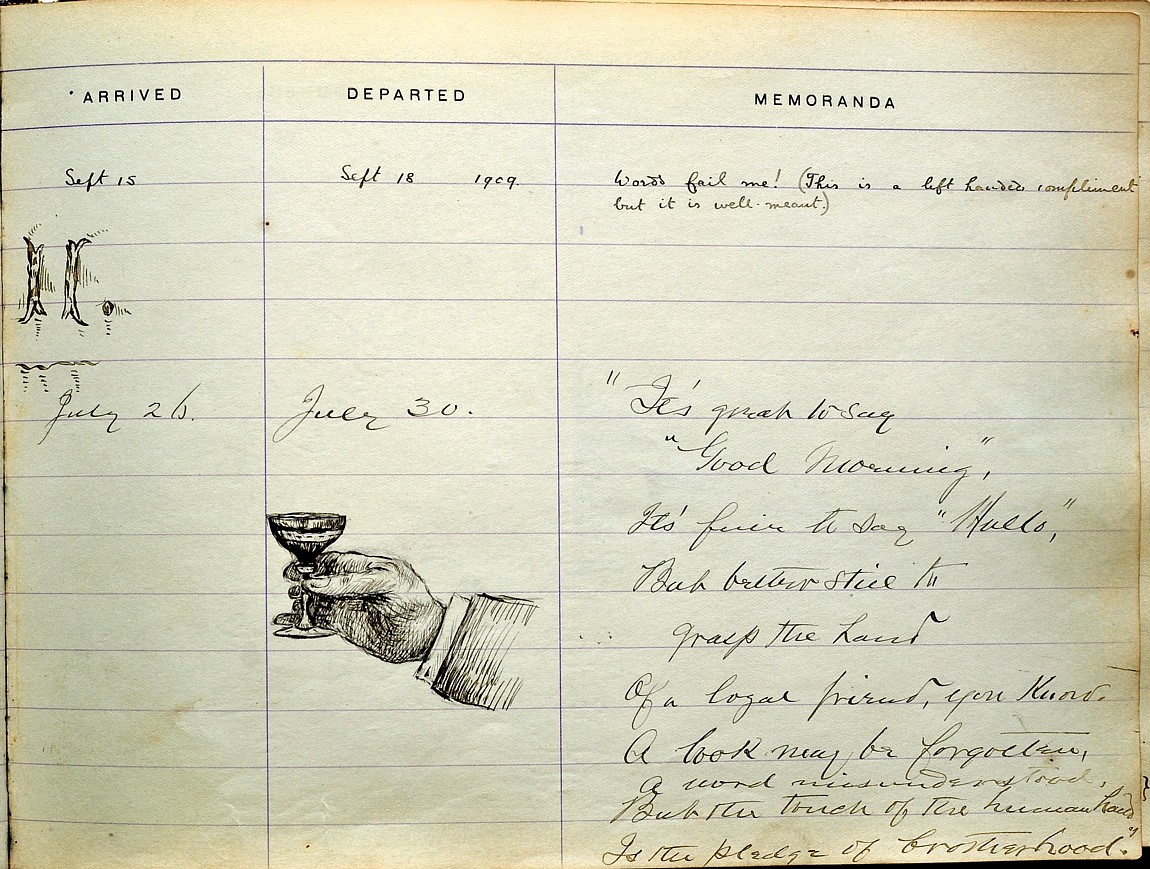 ARRIVED DEPARTED MEMORANDA
Sept 15 Sept 18 1909. Words fail me! (This is a left handed compliment
but it is well-meant.)
July 26. July 30. "It's great to say
"Good Morning",
It's fine to say "Hello,"
But better still to
grasp the hand
Of a loyal friend, you know.
A look may be forgotten,
a word misunderstood,
But the touch of the human hand
Is the pledge of brotherhood."